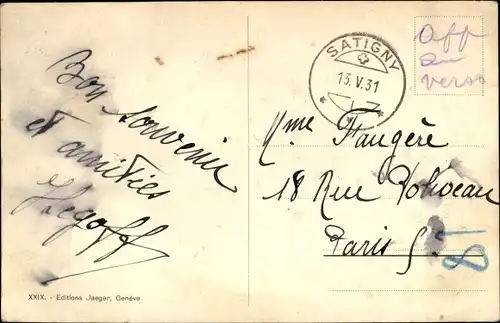 Bon souvenir
et amitiés
SATIGNY
13.V.31
Aff
au
verso
Mme Faugère
18 Rue Poliveau
Paris 5e
XXIX. - Editions Jaeger, Genève